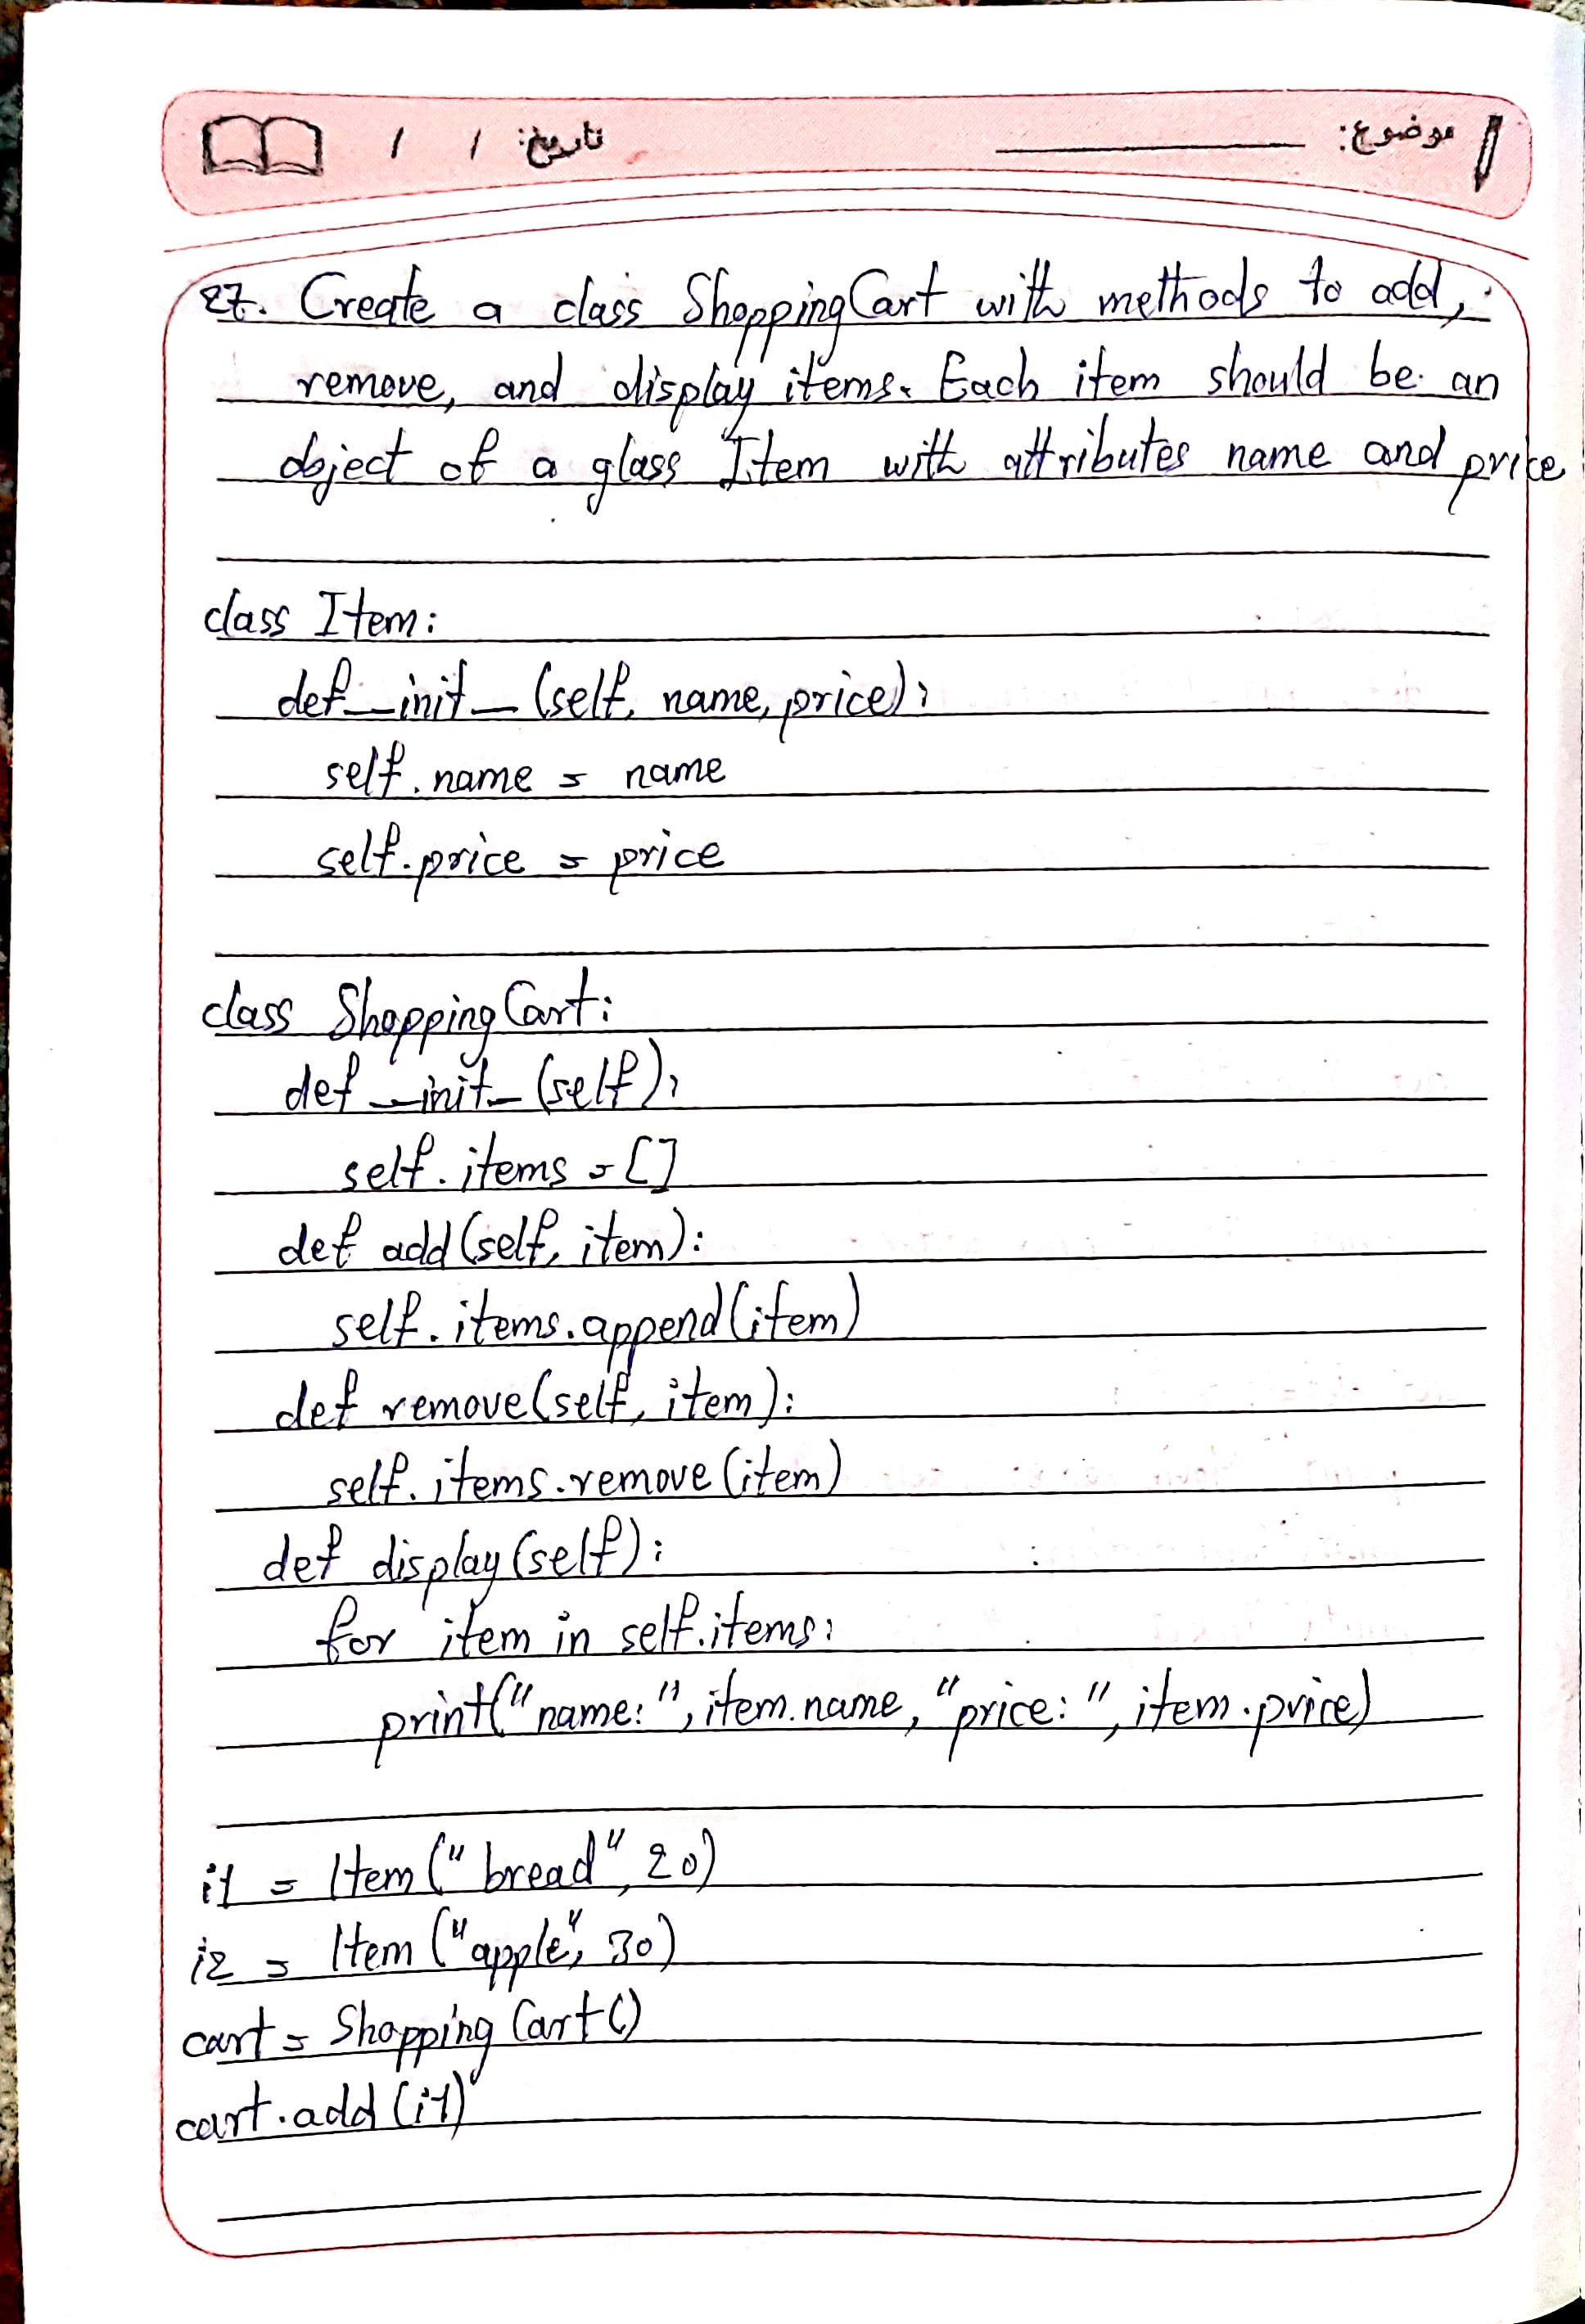 موضوع: تاریخ: / /
27. Create a class ShoppingCart with methods to add,
remove, and display items. Each item should be an
object of a glass Item with attributes name and price
class Item:
def _init_ (self, name, price):
self.name = name
self.price = price
class ShoppingCart:
def _init_ (self):
self.items = []
def add(self, item):
self.items.append(item)
def remove(self, item):
self.items.remove(item)
def display(self):
for item in self.items:
print("name:", item.name, "price:", item.price)
i1 = Item("bread", 20)
i2 = Item("apple", 30)
cart = ShoppingCart()
cart.add(i1)